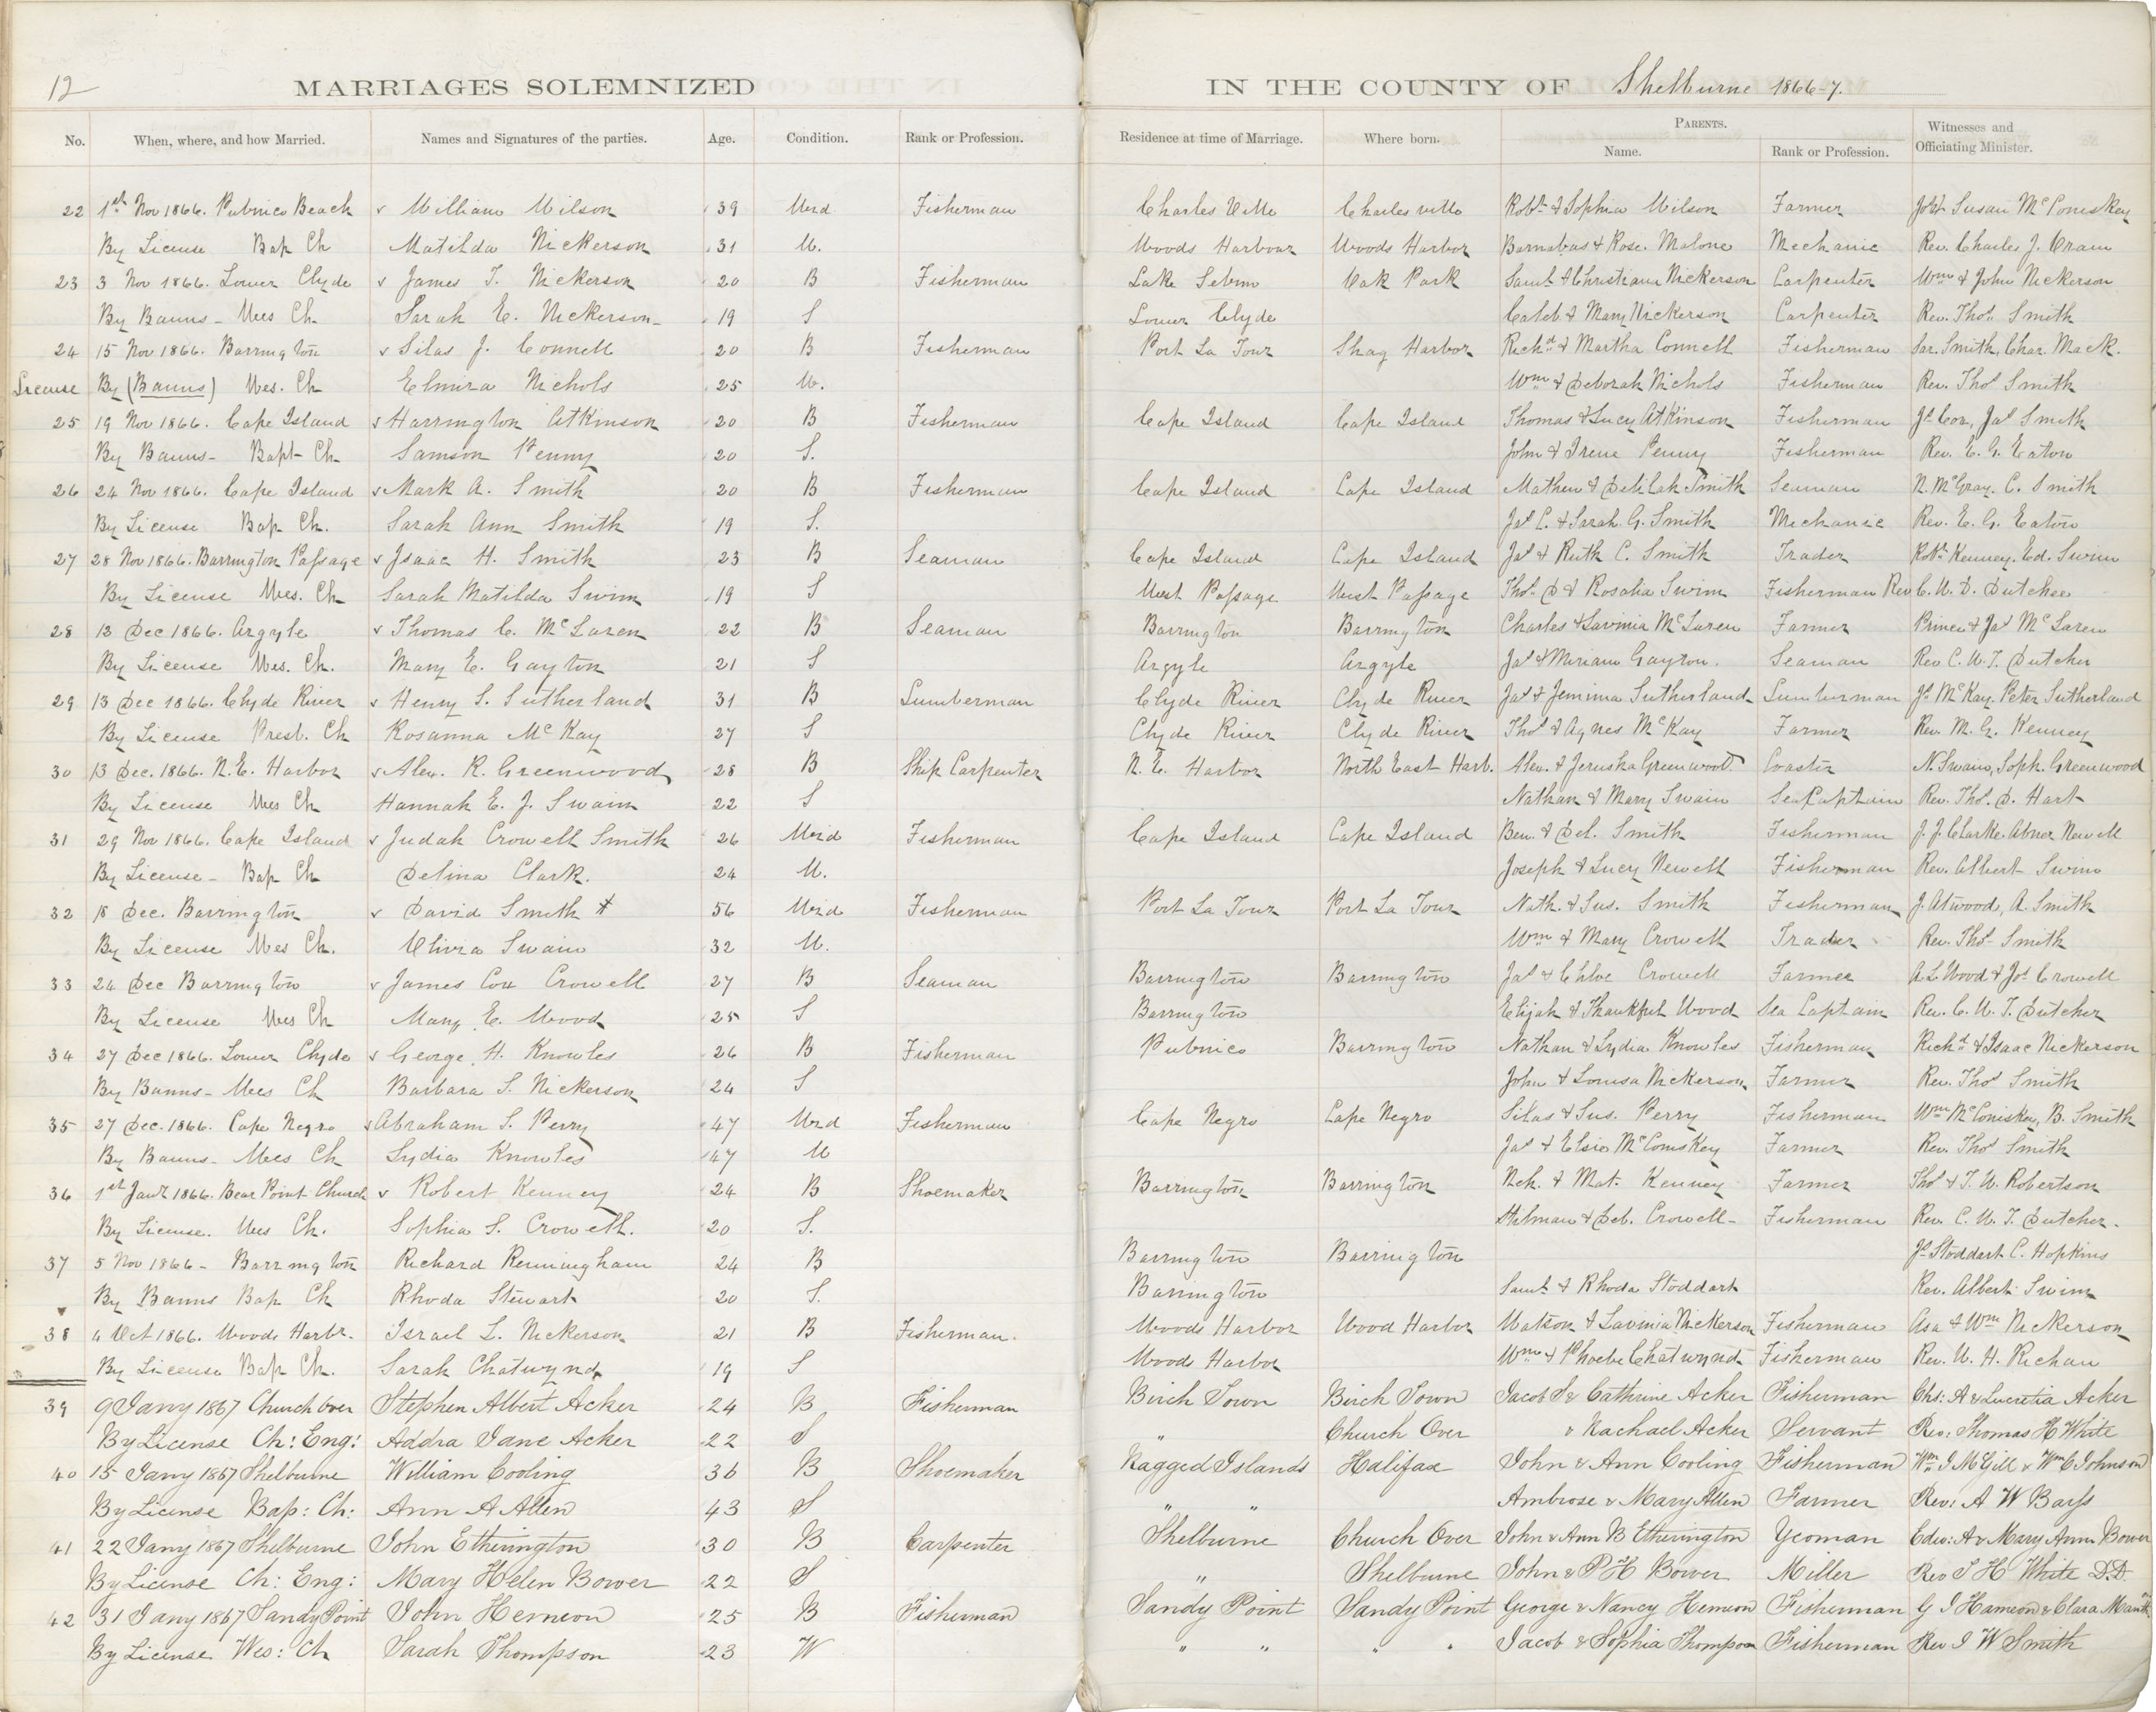 12
MARRIAGES SOLEMNIZED IN THE COUNTY OF Shelburne 1866-7.
No. When, where, and how Married. Names and Signatures of the parties. Age. Condition. Rank or Profession. Residence at time of Marriage. Where born. PARENTS. Name. Rank or Profession. Witnesses and Officiating Minister.
22 1st Nov 1866. Pubnico Beach v William Wilson 39 Wid Fisherman Charles Ville Charlesville Robt & Sophia Wilson Farmer Susan McComiskey
By License Bap Ch Matilda Nickerson 31 W. Woods Harbour Woods Harbor Barnabas & Rose. Malone Mechanic Rev. Charles J. Oram
23 3 Nov 1866. Lower Clyde v James T. Nickerson 20 B Fisherman Lake Sebim Oak Park Saml & Christiana Nickerson Carpenter Wm & John Nickerson
By Banns - Wes Ch. Sarah E. Nickerson 19 S Lower Clyde Caleb & Mary Nickerson Carpenter Rev. Thos Smith
24 15 Nov 1866. Barrington v Silas J. Connell 20 B Fisherman Port La Tour Shag Harbor Richd & Martha Connell Fisherman Sar. Smith, Char. Mack.
License By (Banns) Wes. Ch Elmira Nichols 25 W. Wm & Deborah Nichols Fisherman Rev. Thos Smith
25 19 Nov 1866. Cape Island v Harrington Atkinson 20 B Fisherman Cape Island Cape Island Thomas & Lucy Atkinson Fisherman Js Cox, Jas Smith
By Banns - Bapt Ch Samson Penny 20 S. John & Irene Penny Fisherman Rev. E. G. Eaton
26 24 Nov 1866. Cape Island v Mark A. Smith 20 B Fisherman Cape Island Cape Island Mathew & Delilah Smith Seaman N. McGray. C. Smith
By License Bap Ch. Sarah Ann Smith 19 S. Jas L. & Sarah G. Smith Mechanic Rev. E. G. Eaton
27 28 Nov 1866. Barrington Passage v Isaac H. Smith 23 B Seaman Cape Island Cape Island Jas & Ruth C. Smith Trader Robt Kenney. Ed. Swim
By License Wes. Ch Sarah Matilda Swim 19 S West Passage West Passage Thos D & Rosalia Swim Fisherman Rev C. W. D. Dutcher
28 13 Dec 1866. Argyle v Thomas C. McLaren 22 B Seaman Barrington Barrington Charles & Lavinia McLaren Farmer Prince & Jas McLaren
By License Wes. Ch. Mary E. Gayton 21 S Argyle Argyle Jas & Miriam Gayton. Seaman Rev C. W. T. Dutcher
29 13 Dec 1866. Clyde River v Henry S. Sutherland 31 B Lumberman Clyde River Clyde River Jas & Jemima Sutherland Lumberman Js McKay. Peter Sutherland
By License Presb. Ch Rosanna McKay 27 S Clyde River Clyde River Thos & Agnes McKay Farmer Rev. M. G. Kenney
30 13 Dec. 1866. N.E. Harbor v Alex. R. Greenwood 28 B Ship Carpenter N. E. Harbor North East Harb. Alex. & Jerusha Greenwood Coaster N. Swain, Soph. Greenwood
By License Wes Ch Hannah E. J. Swain 22 S Nathan & Mary Swain Sea Captain Rev. Thos. D. Hart
31 29 Nov 1866. Cape Island v Judah Crowell Smith 26 Wid Fisherman Cape Island Cape Island Ben. & Del. Smith Fisherman J. J. Clarke. Abner Newell
By License - Bap Ch Delina Clark. 24 W. Joseph & Lucy Newell Fisherman Rev. Albert Swim
32 18 Dec. Barrington v David Smith 56 Wid Fisherman Port La Tour Port La Tour Nath. & Sus. Smith Fisherman J. Atwood, A. Smith
By License Wes Ch. Olivia Swain 32 W. Wm & Mary Crowell Trader Rev. Thos Smith
33 24 Dec Barrington v James Cox Crowell 27 B Seaman Barrington Barrington Jas & Chloe Crowell Farmer A. L. Wood & Jos Crowell
By License Wes Ch Mary E. Wood 25 S Barrington Elijah & Thankful Wood Sea Captain Rev. C. W. T. Dutcher
34 27 Dec 1866. Lower Clyde v George H. Knowles 26 B Fisherman Pubnico Barrington Nathan & Lydia Knowles Fisherman Richd & Isaac Nickerson
By Banns - Wes Ch Barbara S. Nickerson 24 S John & Louisa Nickerson Farmer Rev. Thos Smith
35 27 Dec. 1866. Cape Negro v Abraham S. Perry 47 Wid Fisherman Cape Negro Cape Negro Silas & Sus. Perry Fisherman Wm McComiskey, B. Smith
By Banns - Wes Ch Lydia Knowles 47 W Jas & Elsie McComiskey Farmer Rev. Thos Smith
36 1st Jany 1866. Bear Point Church v Robert Kenney 24 B Shoemaker Barrington Barrington Neh. & Mat. Kenney Farmer Thos & T. W. Robertson
By License. Wes Ch. Sophia S. Crowell. 20 S. Stilman & Deb. Crowell - Fisherman Rev. C. W. T. Dutcher.
37 5 Nov 1866 - Barrington Richard Renningham 24 B Barrington Barrington Js Stoddart C. Hopkins
By Banns Bap Ch Rhoda Stewart 20 S. Barrington Saml & Rhoda Stoddart Rev. Albert Swim
38 4 Oct 1866. Woods Harbr. Israel L. Nickerson 21 B Fisherman. Woods Harbor Wood Harbor Watson & Lavinia Nickerson Fisherman Asa & Wm Nickerson
By License Bap Ch. Sarah Chatwynd 19 S Woods Harbor Wm & Phoebe Chatwynd Fisherman Rev. W. H. Richan
39 9 Jany 1867 Church Over Stephen Albert Acker 24 B Fisherman Birch Town Birch Town Jacob S & Cathrine Acker Fisherman Chs: A & Lucretia Acker
By License Ch: Eng: Addra Jane Acker 22 S " Church Over & Rachael Acker Servant Rev: Thomas H White
40 15 Jany 1867 Shelburne William Cooling 36 B Shoemaker Ragged Islands Halifax John & Ann Cooling Fisherman Wm J McGill & Wm C Johnson
By License Bap: Ch: Ann A Allen 43 S " " Ambrose & Mary Allen Farmer Rev: A W Barss
41 22 Jany 1867 Shelburne John Etherington 30 B Carpenter Shelburne Church Over John & Ann B Etherington Yeoman Edw: A & Mary Ann Bower
By License Ch: Eng: Mary Helen Bower 22 S " Shelburne John & P H Bower Miller Rev T H White D.D.
42 31 Jany 1867 Sandy Point John Hemeon 25 B Fisherman Sandy Point Sandy Point George & Nancy Hemeon Fisherman G J Hameon & Clara
By License Wes: Ch Sarah Thompson 23 W " " " " Jacob & Sophia Thompson Fisherman Rev J W Smith